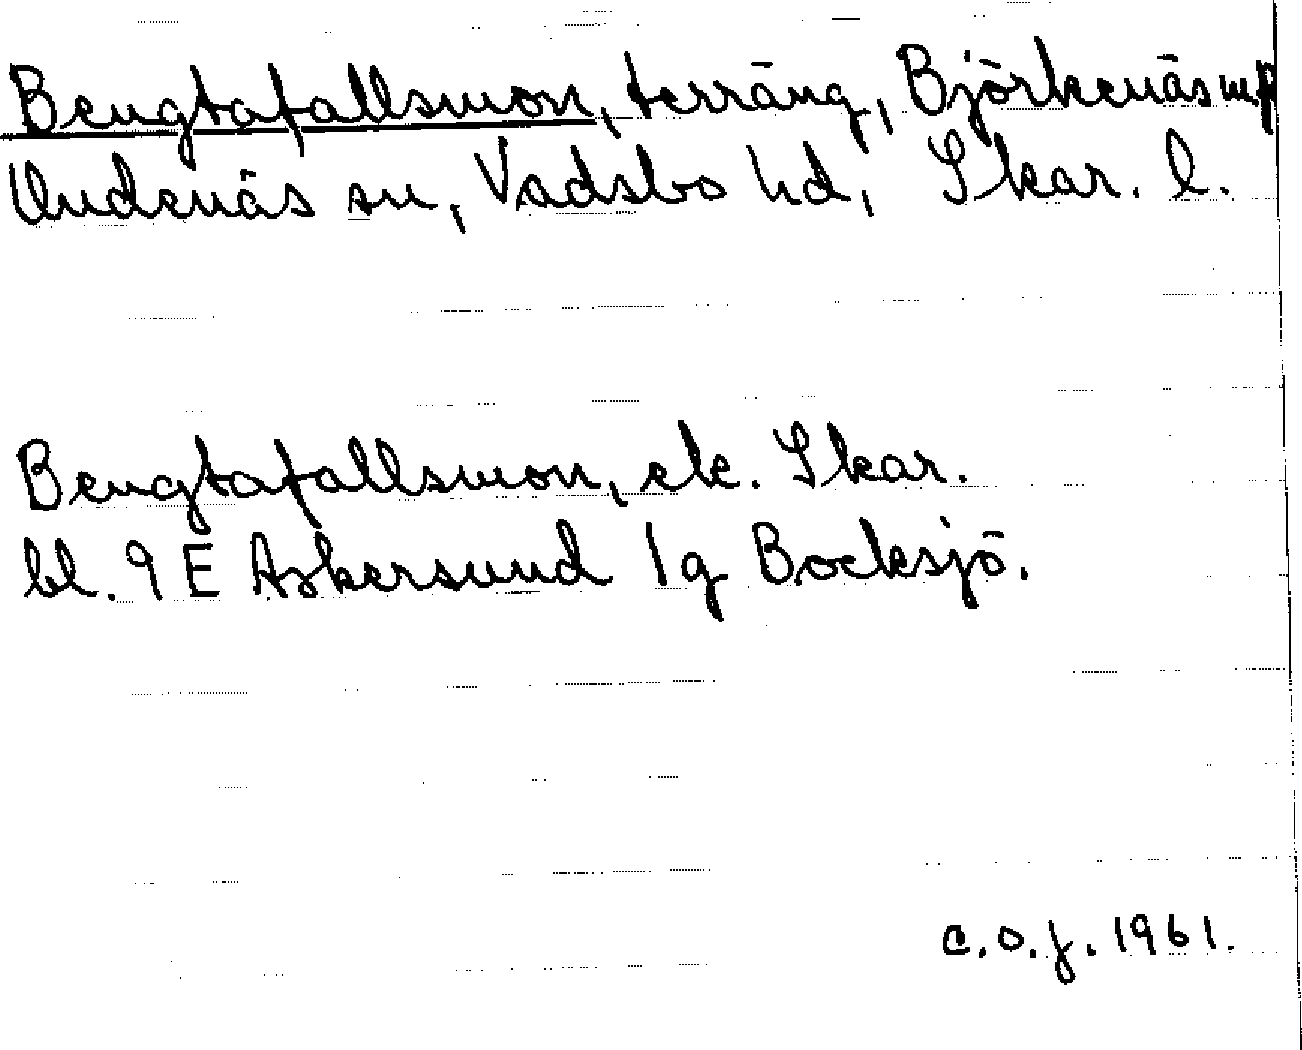 Bengtafallsmon, terräng, Björkenäs mf
Undenäs sn, Vadsbo hd, Skar. l.
Bengtafallsmon, ek. Skar.
bl. 9 E Askersund 1g Bocksjö.
C.O.J. 1961.